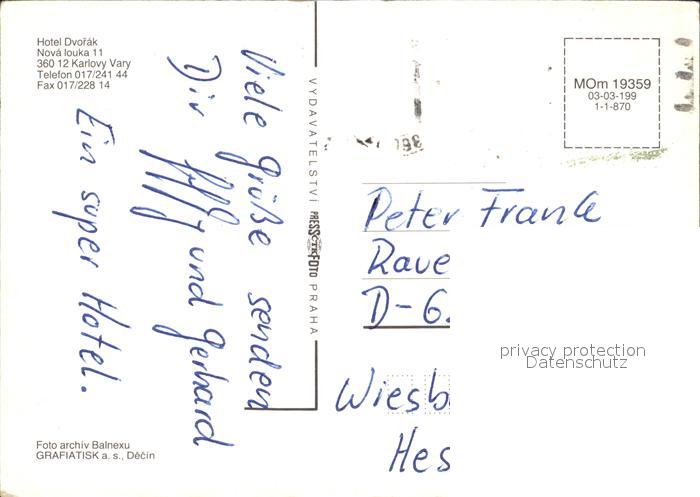 Hotel Dvořák
Nová louka 11
360 12 Karlovy Vary
Telefon 017/241 44
Fax 017/228 14
Viele Grüße senden
Dir
und Gerhard
Ein super Hotel.
VYDAVATELSTVÍ PRESSFOTO PRAHA
MOm 19359
03-03-199
1-1-870
360
Peter Frank
Raue
D-6.
Wiesb
Hes
privacy protection
Datenschutz
Foto archív Balnexu
GRAFIATISK a. s., Děčín